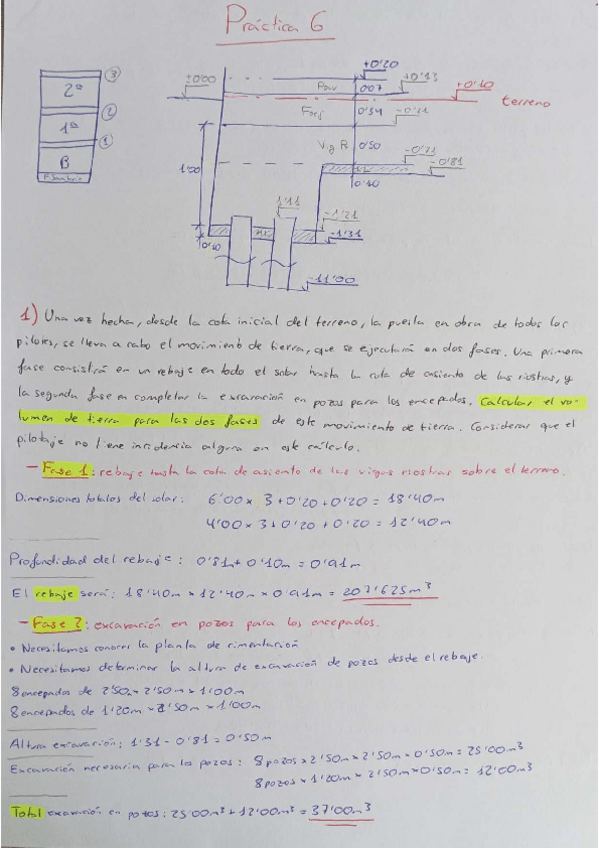 Práctica 6
+0'20
±0'00
Pav
0'07
+0'13
+0'10
terreno
Forj
0'34
-0'21
3
2ª
2
1ª
1
B
F. Sanitario
Vig R
0'50
-0'71
-0'81
0'10
1'00
1'11
-1'21
-1'31
0'10
-11'00
1) Una vez hecha, desde la cota inicial del terreno, la puesta en obra de todos los
pilotes, se lleva a cabo el movimiento de tierra, que se ejecutará en dos fases. Una primera
fase consistirá en un rebaje en todo el solar hasta la cota de asiento de las riostras, y
la segunda fase en completar la excavación en pozos para los encepados. Calcular el vo-
lumen de tierra para las dos fases de este movimiento de tierra. Considerar que el
pilotaje no tiene incidencia alguna en este cálculo.
- Fase 1: rebaje hasta la cota de asiento de las vigas riostras sobre el terreno.
Dimensiones totales del solar: 6'00 x 3 + 0'20 + 0'20 = 18'40m
4'00 x 3 + 0'20 + 0'20 = 12'40m
Profundidad del rebaje: 0'81m + 0'10m = 0'91m
El rebaje será: 18'40m x 12'40m x 0'91m = 207'625m³
- Fase 2: excavación en pozos para los encepados.
• Necesitamos conocer la planta de cimentación
• Necesitamos determinar la altura de excavación de pozos desde el rebaje.
8 encepados de 2'50m x 2'50m x 1'00m
8 encepados de 1'20m x 2'50m x 1'00m
Altura excavación: 1'31 - 0'81 = 0'50m
Excavación necesaria para los pozos: 8 pozos x 2'50m x 2'50m x 0'50m = 25'00m³
8 pozos x 1'20m x 2'50m x 0'50m = 12'00m³
Total excavación en pozos: 25'00m³ + 12'00m³ = 37'00m³